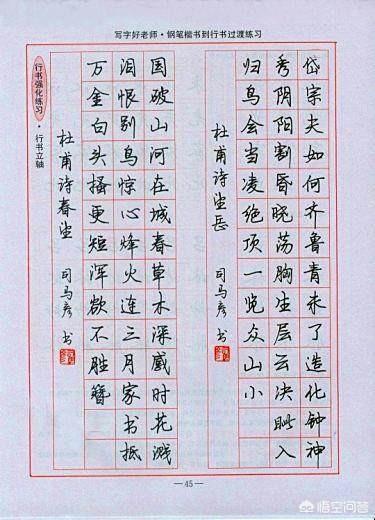 写字好老师·钢笔楷书到行书过渡练习
岱宗夫如何齐鲁青未了造化钟神
秀阴阳割昏晓荡胸生层云决眦入
归鸟会当凌绝顶一览众山小
杜甫诗望岳 司马彦书
国破山河在城春草木深感时花溅
泪恨别鸟惊心烽火连三月家书抵
万金白头搔更短浑欲不胜簪
杜甫诗春望 司马彦书
行书强化练习·行书立轴
—45—
悟空问答